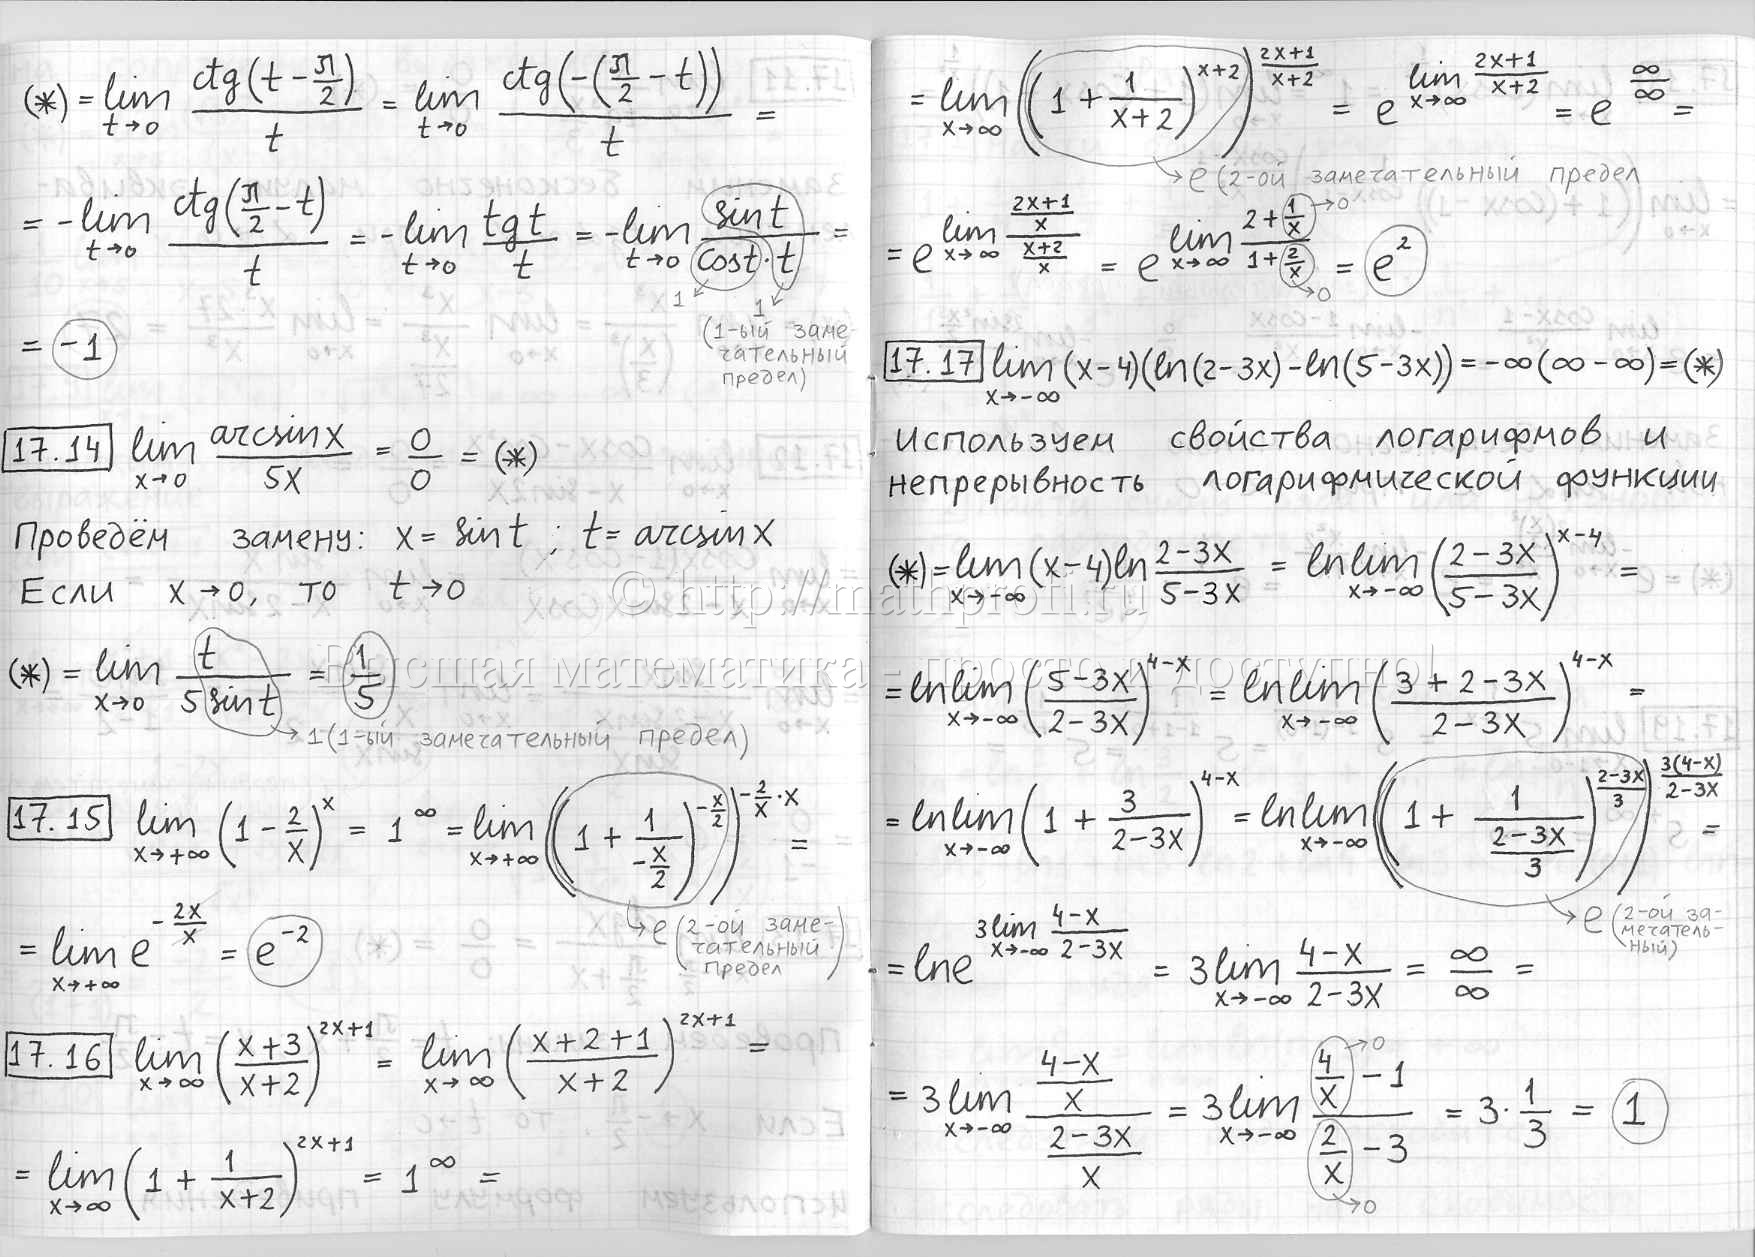 (*) = lim t→0 ctg(t − π/2) / t = lim t→0 ctg(−(π/2 − t)) / t =
= −lim t→0 ctg(π/2 − t) / t = −lim t→0 tgt / t = −lim t→0 sint / (cost · t) =
1 1
(1-ый заме-
чательный
предел)
= −1
17.14 lim x→0 arcsinx / 5x = 0/0 = (*)
Проведём замену: x = sint ; t = arcsinx
Если x→0, то t→0
(*) = lim x→0 t / 5sint = 1/5
→ 1 (1-ый замечательный предел)
17.15 lim x→+∞ (1 − 2/x)^x = 1^∞ = lim x→+∞ ((1 + 1/(−x/2))^(−x/2))^(−2/x · x) =
→ e (2-ой заме-
чательный
предел)
= lim x→+∞ e^(−2x/x) = e^−2
17.16 lim x→∞ ((x+3)/(x+2))^(2x+1) = lim x→∞ ((x+2+1)/(x+2))^(2x+1) =
= lim x→∞ (1 + 1/(x+2))^(2x+1) = 1^∞ =
= lim x→∞ ((1 + 1/(x+2))^(x+2))^((2x+1)/(x+2)) = e^(lim x→∞ (2x+1)/(x+2)) = e^(∞/∞) =
→ e (2-ой замечательный предел
= e^(lim x→∞ ((2x+1)/x)/((x+2)/x)) = e^(lim x→∞ (2 + 1/x →0)/(1 + 2/x →0)) = e^2
17.17 lim x→−∞ (x−4)(ln(2−3x) − ln(5−3x)) = −∞(∞−∞) = (*)
Используем свойства логарифмов и
непрерывность логарифмической функции
(*) = lim x→−∞ (x−4)ln (2−3x)/(5−3x) = ln lim x→−∞ ((2−3x)/(5−3x))^(x−4) =
= ln lim x→−∞ ((5−3x)/(2−3x))^(4−x) = ln lim x→−∞ ((3+2−3x)/(2−3x))^(4−x) =
= ln lim x→−∞ (1 + 3/(2−3x))^(4−x) = ln lim x→−∞ ((1 + 1/((2−3x)/3))^((2−3x)/3))^(3(4−x)/(2−3x)) =
→ e (2-ой за-
мечатель-
ный)
= ln e^(3 lim x→−∞ (4−x)/(2−3x)) = 3 lim x→−∞ (4−x)/(2−3x) = ∞/∞ =
= 3 lim x→−∞ ((4−x)/x)/((2−3x)/x) = 3 lim x→−∞ (4/x →0 − 1)/(2/x →0 − 3) = 3 · 1/3 = 1
© http://mathprofi.ru
Высшая математика – просто и доступно!